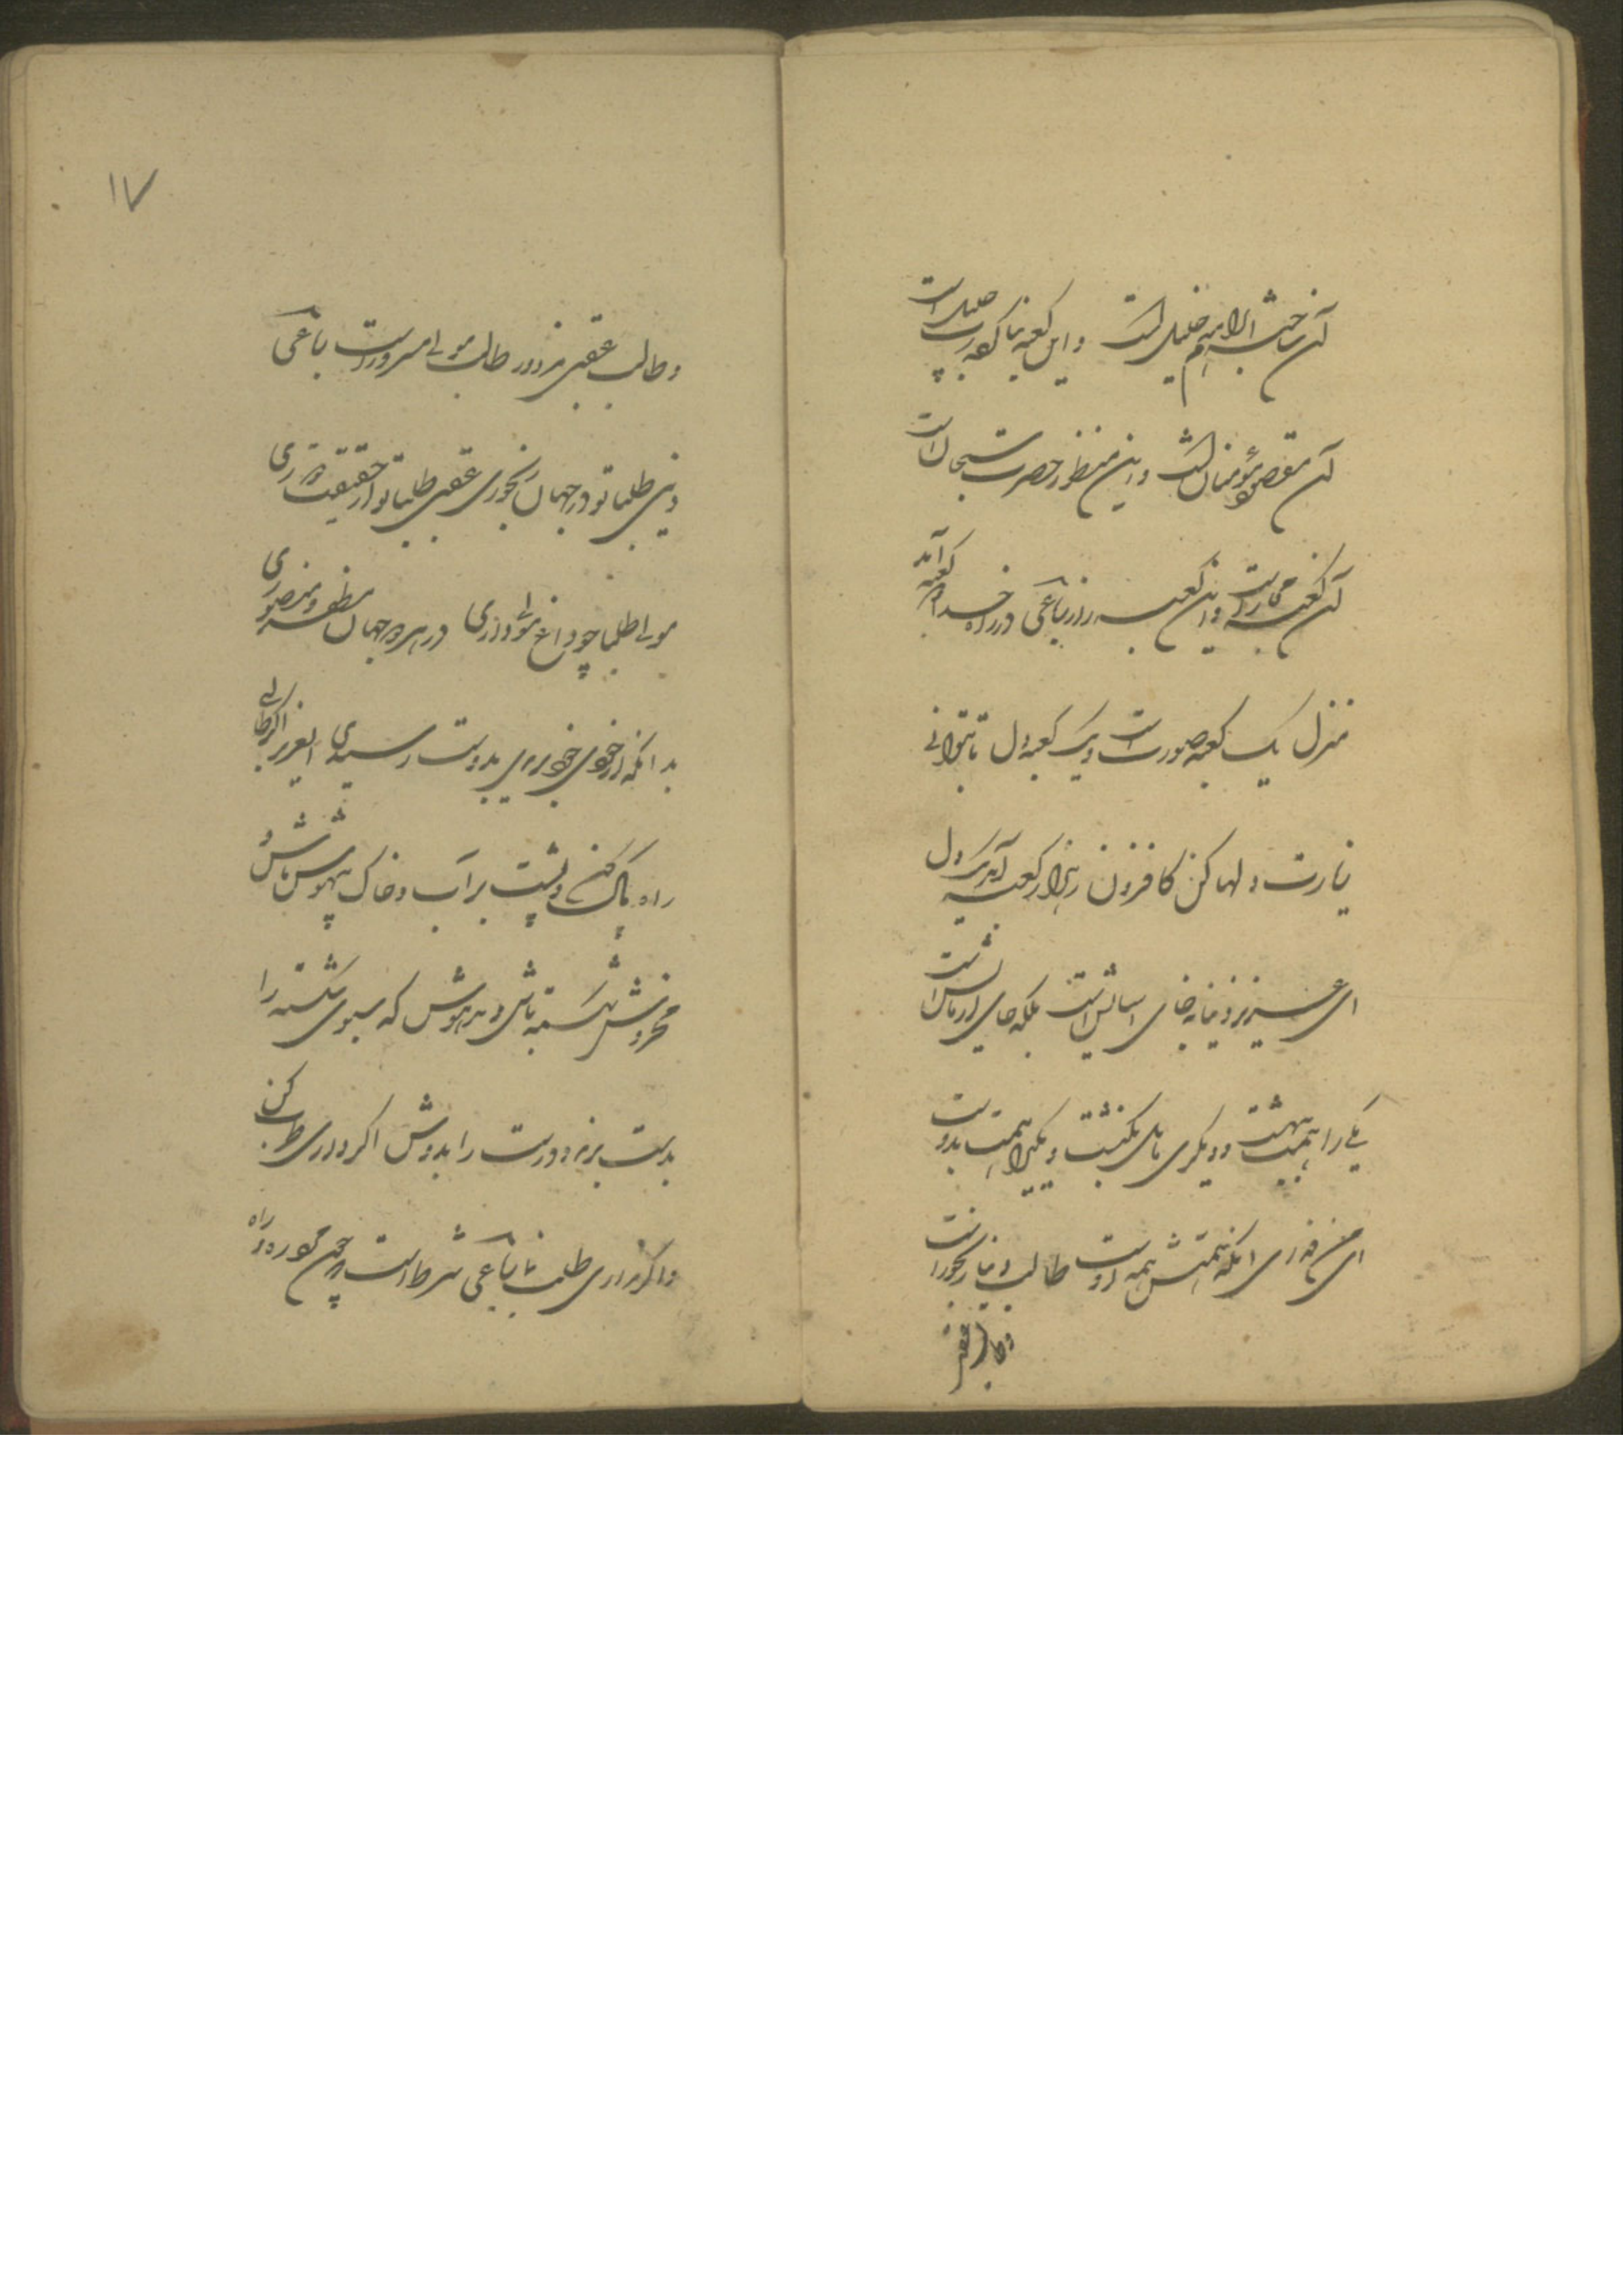 آن ساخته ابراهیم خلیل است و این کعبه بنا کرده رب جلیل است
آن مقصود مؤمنان است و این منظور حضرت سبحان است
آن کعبه حجاز است و این کعبه راز رباعی در راه خدا دو کعبه آمد
منزل یک کعبه صورت است و یک کعبه دل تا بتوانی
زیارت دلها کن کافزون ز هزار کعبه آمد یک دل
ای عزیز دنیا نه جای اسایش است بلکه جای ازمایش است
یکی را همت بهشت و دیگری مایل بکنشت و یکیرا همت بدوست
ای من فدای انکه همتش همه اوست طالب دنیا رنجور است
و طالب عقبی
۱۷
و طالب عقبی مزدور و طالب مولی مسرور است رباعی
دنیی طلبا تو در جهان رنجوری عقبی طلبا تو از حقیقت دوری
مولی طلبا چو داغ مولی داری در هر دو جهان مظفر و منصوری
بدانکه از خودی خود بری بدوست رسیدی ایعزیز اگر طالبی
راه پاک کن و پشت بر آب و خاک بیهوش باش و
مخروش شکسته باش و مدهوش که سبوی شکسته را
بدست برند و درست را بدوش اگر داری طرب کن
و اگر نداری طلب نما رباعی شرط است که چون مرد ره